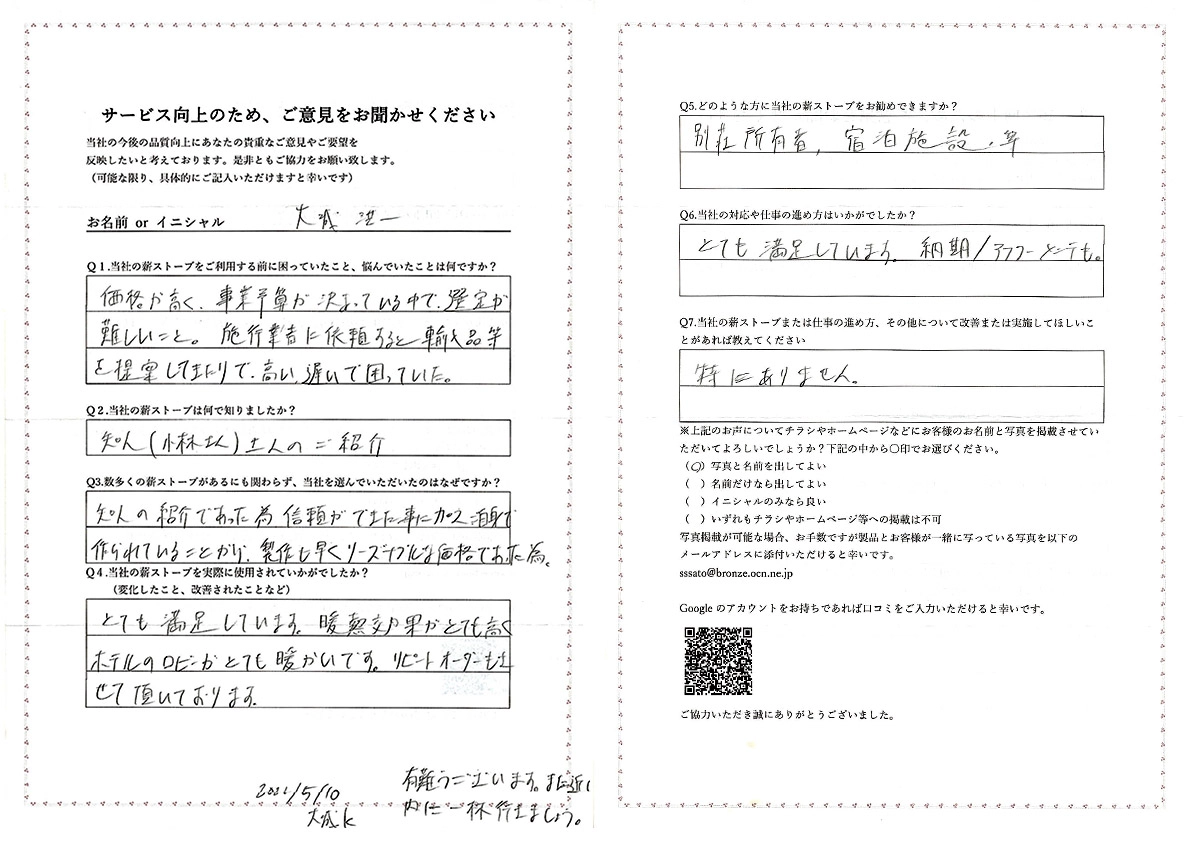 サービス向上のため、ご意見をお聞かせください
当社の今後の品質向上にあなたの貴重なご意見やご要望を
反映したいと考えております。是非ともご協力をお願い致します。
（可能な限り、具体的にご記入いただけますと幸いです）
お名前 or イニシャル 大城 浩一
Q１.当社の薪ストーブをご利用する前に困っていたこと、悩んでいたことは何ですか？
価格が高く、事業予算が決まっている中で、選定が
難しいこと。施行業者に依頼すると輸入品等
を提案してきたりで、高い、遅いで困っていた。
Q２.当社の薪ストーブは何で知りましたか？
知人(小林さん)さんのご紹介
Q3.数多くの薪ストーブがあるにも関わらず、当社を選んでいただいたのはなぜですか？
知人の紹介であった為 信頼ができた事に加え 自身で
作られていることから、製作も早くリーズナブルな価格であった為。
Q４.当社の薪ストーブを実際に使用されていかがでしたか？
（変化したこと、改善されたことなど）
とても満足しています。暖熱効果がとても高く
ホテルのロビーがとても暖かいです。リピートオーダーもさ
せて頂いております。
2021/5/10
大城k
有難うございます。また近い
内に一杯行きましょう。
Q5.どのような方に当社の薪ストーブをお勧めできますか？
別荘所有者, 宿泊施設、等
Q6.当社の対応や仕事の進め方はいかがでしたか？
とても満足しています。納期/アフターとても。
Q7.当社の薪ストーブまたは仕事の進め方、その他について改善または実施してほしいこ
とがあれば教えてください
特にありません。
※上記のお声についてチラシやホームページなどにお客様のお名前と写真を掲載させてい
ただいてよろしいでしょうか？下記の中から○印でお選びください。
（○）写真と名前を出してよい
（ ）名前だけなら出してよい
（ ）イニシャルのみなら良い
（ ）いずれもチラシやホームページ等への掲載は不可
写真掲載が可能な場合、お手数ですが製品とお客様が一緒に写っている写真を以下の
メールアドレスに添付いただけると幸いです。
sssato@bronze.ocn.ne.jp
Google のアカウントをお持ちであれば口コミをご入力いただけると幸いです。
ご協力いただき誠にありがとうございました。